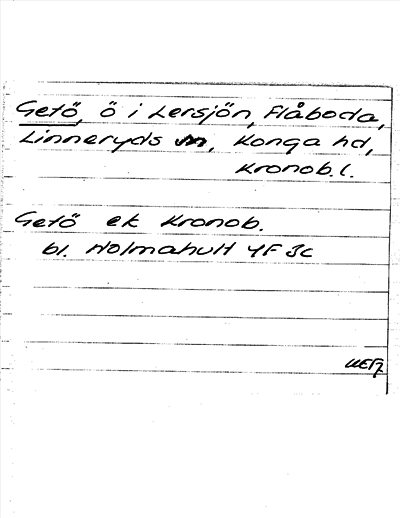 Getö, ö i Lersjön, Flåboda,
Linneryds sn, Konga hd,
Kronob. l.
Getö ek Kronob.
bl. Holmahult 4F 3c